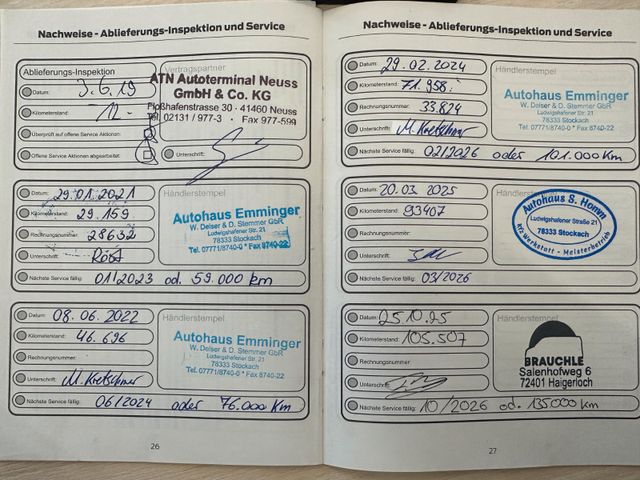 Nachweise - Ablieferungs-Inspektion und Service
Ablieferungs-Inspektion
Vertragspartner
Datum: 3.6.19
Kilometerstand: 12.-
Überprüft auf offene Service Aktionen:
Offene Service Aktionen abgearbeitet:
Unterschrift:
ATN Autoterminal Neuss
GmbH & Co. KG
Floßhafenstrasse 30 · 41460 Neuss
Tel. 02131 / 977-3 · Fax 977-599
Datum: 29.01.2021
Kilometerstand: 29.159
Rechnungsnummer: 28632
Unterschrift:
Nächste Service fällig: 01/2023 od. 59.000 km
Händlerstempel
Autohaus Emminger
W. Delser & D. Stemmer GbR
Ludwigshafener Str. 21
78333 Stockach
Tel. 07771/8740-0 * Fax 8740-22
Datum: 08.06.2022
Kilometerstand: 46.696
Rechnungsnummer:
Unterschrift: M. Kretschmer
Nächste Service fällig: 06/2024 oder 76.000 Km
Händlerstempel
Autohaus Emminger
W. Delser & D. Stemmer GbR
Ludwigshafener Str. 21
78333 Stockach
Tel. 07771/8740-0 * Fax 8740-22
26
Nachweise - Ablieferungs-Inspektion und Service
Datum: 29.02.2024
Kilometerstand: 71.958.
Rechnungsnummer: 33.824
Unterschrift: M. Kretschmer
Nächste Service fällig: 02/2026 oder 101.000 Km
Händlerstempel
Autohaus Emminger
W. Delser & D. Stemmer GbR
Ludwigshafener Str. 21
78333 Stockach
Tel. 07771/8740-0 * Fax 8740-22
Datum: 20.03.2025
Kilometerstand: 93407
Rechnungsnummer:
Unterschrift:
Nächste Service fällig: 03/2026
Händlerstempel
Autohaus S. Homm
Ludwigshafener Straße 21
78333 Stockach
Kfz Werkstatt - Meisterbetrieb
Datum: 25.10.25
Kilometerstand: 105.507
Rechnungsnummer:
Unterschrift:
Nächste Service fällig: 10/2026 od. 135000 km
Händlerstempel
BRAUCHLE
Salenhofweg 6
72401 Haigerloch
27